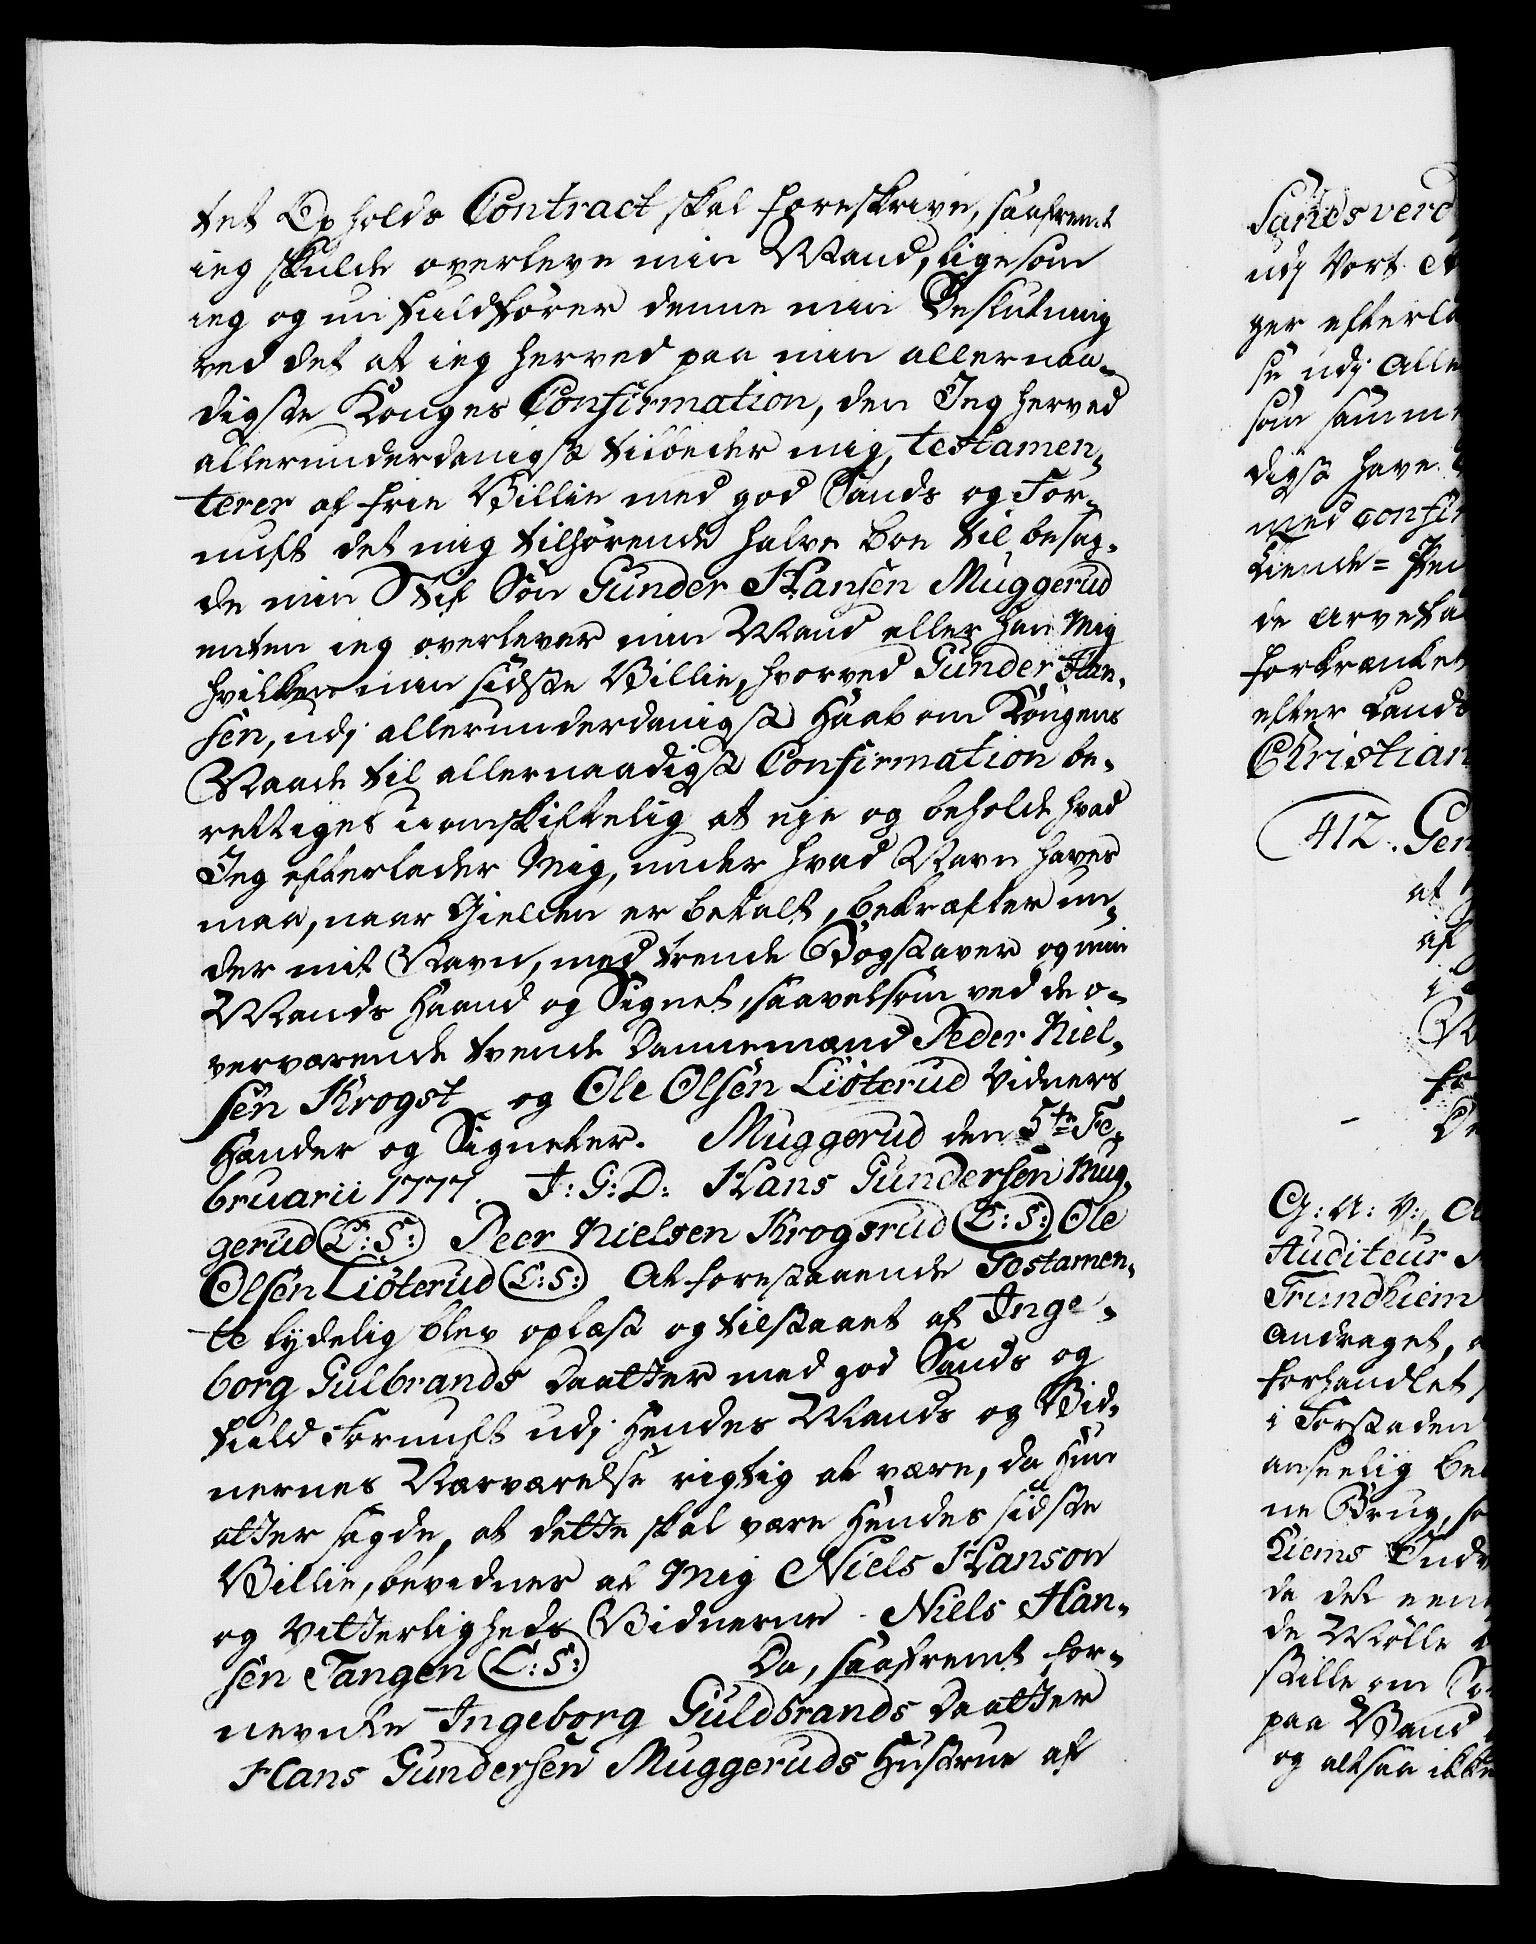 tet Opholds Contract skal foreskrive, saafremt
ieg skulde overleve min Mand, ligesom
ieg og nu fuldfører denne min Beslutning
ved det at ieg herved paa min allernaa-
digste Konges Confirmation, den Jeg herved
allerunderdanigst tilbeder mig, testamen-
terer af frie Villie med god Sands og For-
nuft det mig tilhørende halve Boe til besag-
de min Stif Søn Gunder Hansen Muggerud
enten ieg overlever min Mand eller han Mig
hvilken min sidste Villie, hvorved Gunder Han-
sen, udj allerunderdanigst Haab om Kongens
Naade til allernaadigst Confirmation be-
rettiges uomskiftelig at eye og beholde hvad
Jeg efterlader Mig, under hvad Navn haves
maa, naar Gielden er betalt, bekræfter un-
der mit Navn, med trende Bogstaver og min
Mands Haand og Signet, saavelsom ved de o-
verværende tvende Dannemænd Peder Niel-
sen Krogst og Ole Olsen Liøterud Vidners
Hænder og Signeter. Muggerud den 5te Fe-
bruarii 1777. I: G: D: Hans Gundersen Mug-
gerud (L: S:) Peer Nielsen Krogsrud (L: S:) Ole
Olsen Liøterud (L: S:) At forestaaende Testamen-
te lydelig blev oplæst og tilstaaet af Inge-
borg Gulbrands Daatter med god Sands og
fuld Fornuft udj Hendes Mands og Vid-
nernes Nærværelse rigtig at være, da Hun
atter sagde, at dette skal være Hendes sidste
Villie, bevidner af Mig Niels Hanson
og Vitterligheds Vidnerne. Niels Han-
sen Tangen (L: S:) Da, saafremt for-
nevnte Ingeborg Guldbrands Daatter
Hans Gundersen Muggeruds Hustrue af
Sandsverd
udj Vort
ger efterla
se udj Alle
som samme
digst have
med confir
Kiende= 
de Arveta
forkrænke
efter Lands
Christian
412. Gen
at
af
i
G: A: V:,
Auditeur
Trundhiem
andraget,
forhandlet
i Forstaden
anseelig be
ne Brug, so
hiems
da det een
de Mølle
stille om
paa Vand
og altsaa ikke